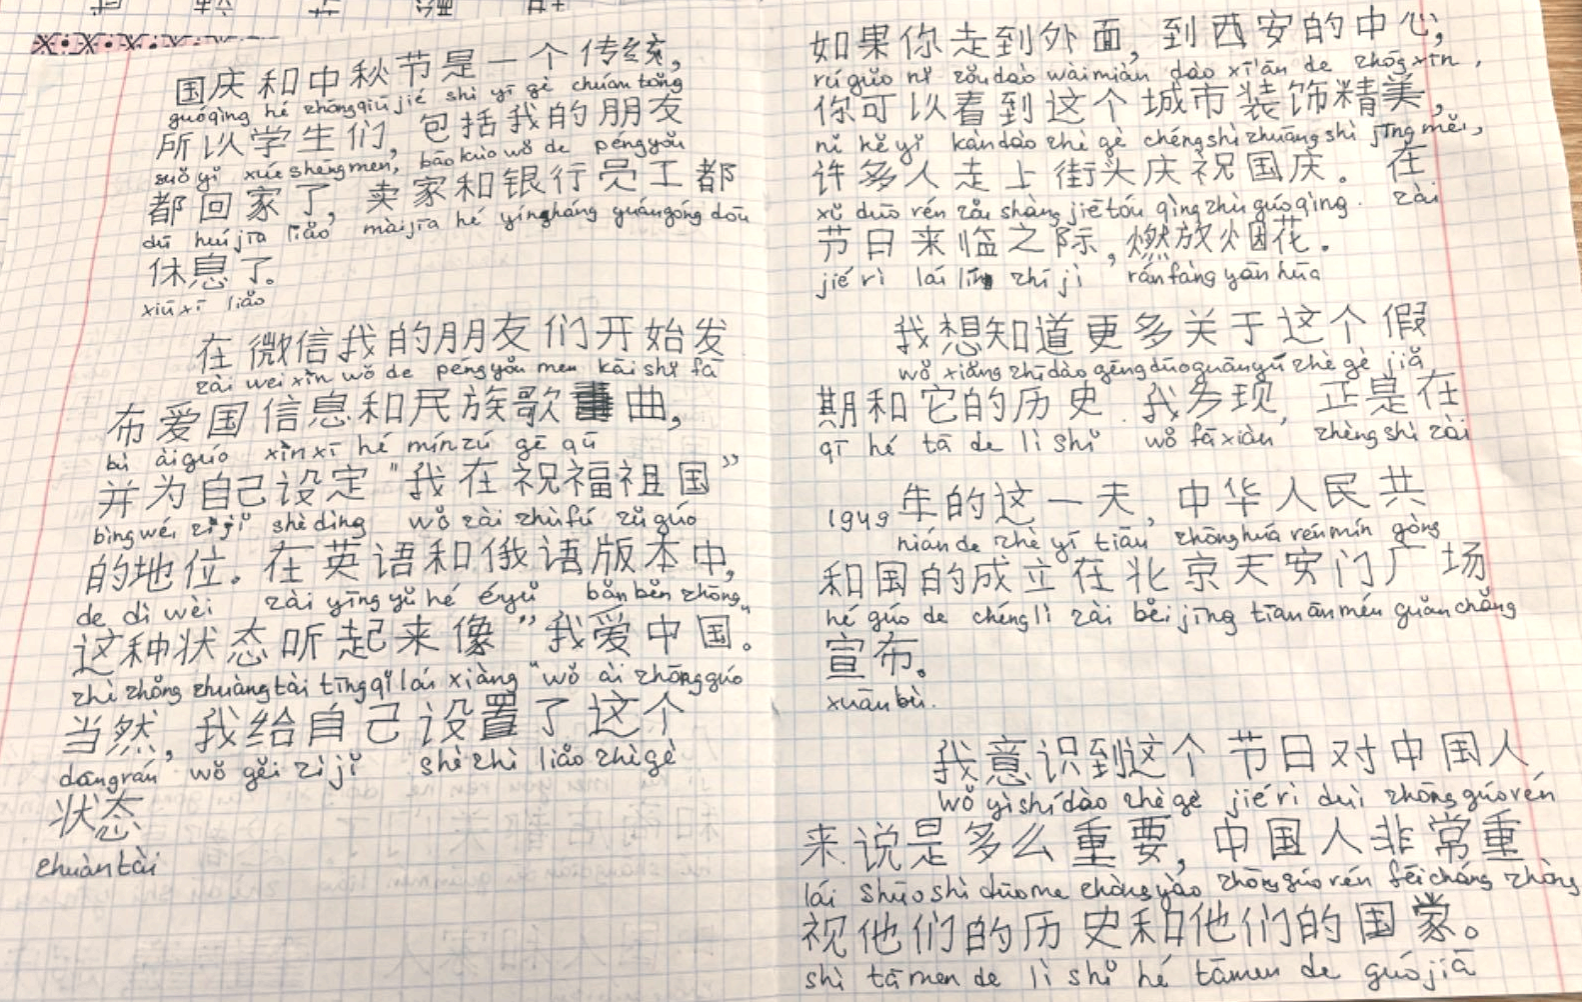 国庆和中秋节是一个传统,
guóqìng hé zhōngqiūjié shì yī gè chuántǒng
所以学生们, 包括我的朋友
suǒ yǐ xuéshēngmen, bāo kuò wǒ de péngyǒu
都回家了, 卖家和银行员工都
dū huí jīa liǎo màijīa hé yíngháng yuángōng dōu
休息了。
xiūxī liǎo
在微信我的朋友们开始发
zài weixìn wǒ de péngyǒu men kāi shǐ fā
布爱国信息和民族歌曲,
bù àiguó xìnxī hé mínzú gē qū
并为自己设定 "我在祝福祖国"
bìngwéi zìjǐ shèdìng wǒ zài zhùfú zǔ guó
的地位。在英语和俄语版本中,
de dì wèi zài yīngyǔ hé éyǔ bǎnběn zhōng,
这种状态听起来像 "我爱中国。"
zhè zhǒng zhuàngtài tīngqǐ lái xiàng "wǒ ài zhōngguó
当然, 我给自己设置了这个
dāngrán wǒ gěi zìjǐ shèzhì liǎo zhègè
状态
zhuàntài
如果你走到外面, 到西安的中心,
rúguǒ nǐ zǒudào wàimiàn dào xī'ān de zhōgxīn,
你可以看到这个城市装饰精美,
nǐ kěyǐ kàndào zhè gè chéngshì zhuāngshì jīngměi,
许多人走上街头庆祝国庆。在
xǔ duō rén zǒu shàng jiētóu qìngzhù guóqìng. zài
节日来临之际, 燃放烟花。
jié rì lái lín zhī jì ránfàng yān hūa
我想知道更多关于这个假
wǒ xiǎng zhīdào gēngdūoguānyú zhè gè jiǎ
期和它的历史. 我发现, 正是在
qī hé tā de lì shǐ wǒ fāxiàn zhèngshì zài
1949 年的这一天, 中华人民共
nián de zhè yī tiān zhōnghuá rénmín gòng
和国的成立在北京天安门广场
hé guó de chénglì zài běijīng tīanānmén guǎnchǎng
宣布。
xuānbù.
我意识到这个节日对中国人
wǒ yìshídào zhègè jiérì duì zhōngguórén
来说是多么重要, 中国人非常重
lái shūoshì dūome zhòngyào zhōngguórén fēicháng zhòng
视他们的历史和他们的国家。
shì tāmen de lì shǐ hé tāmen de guójiā